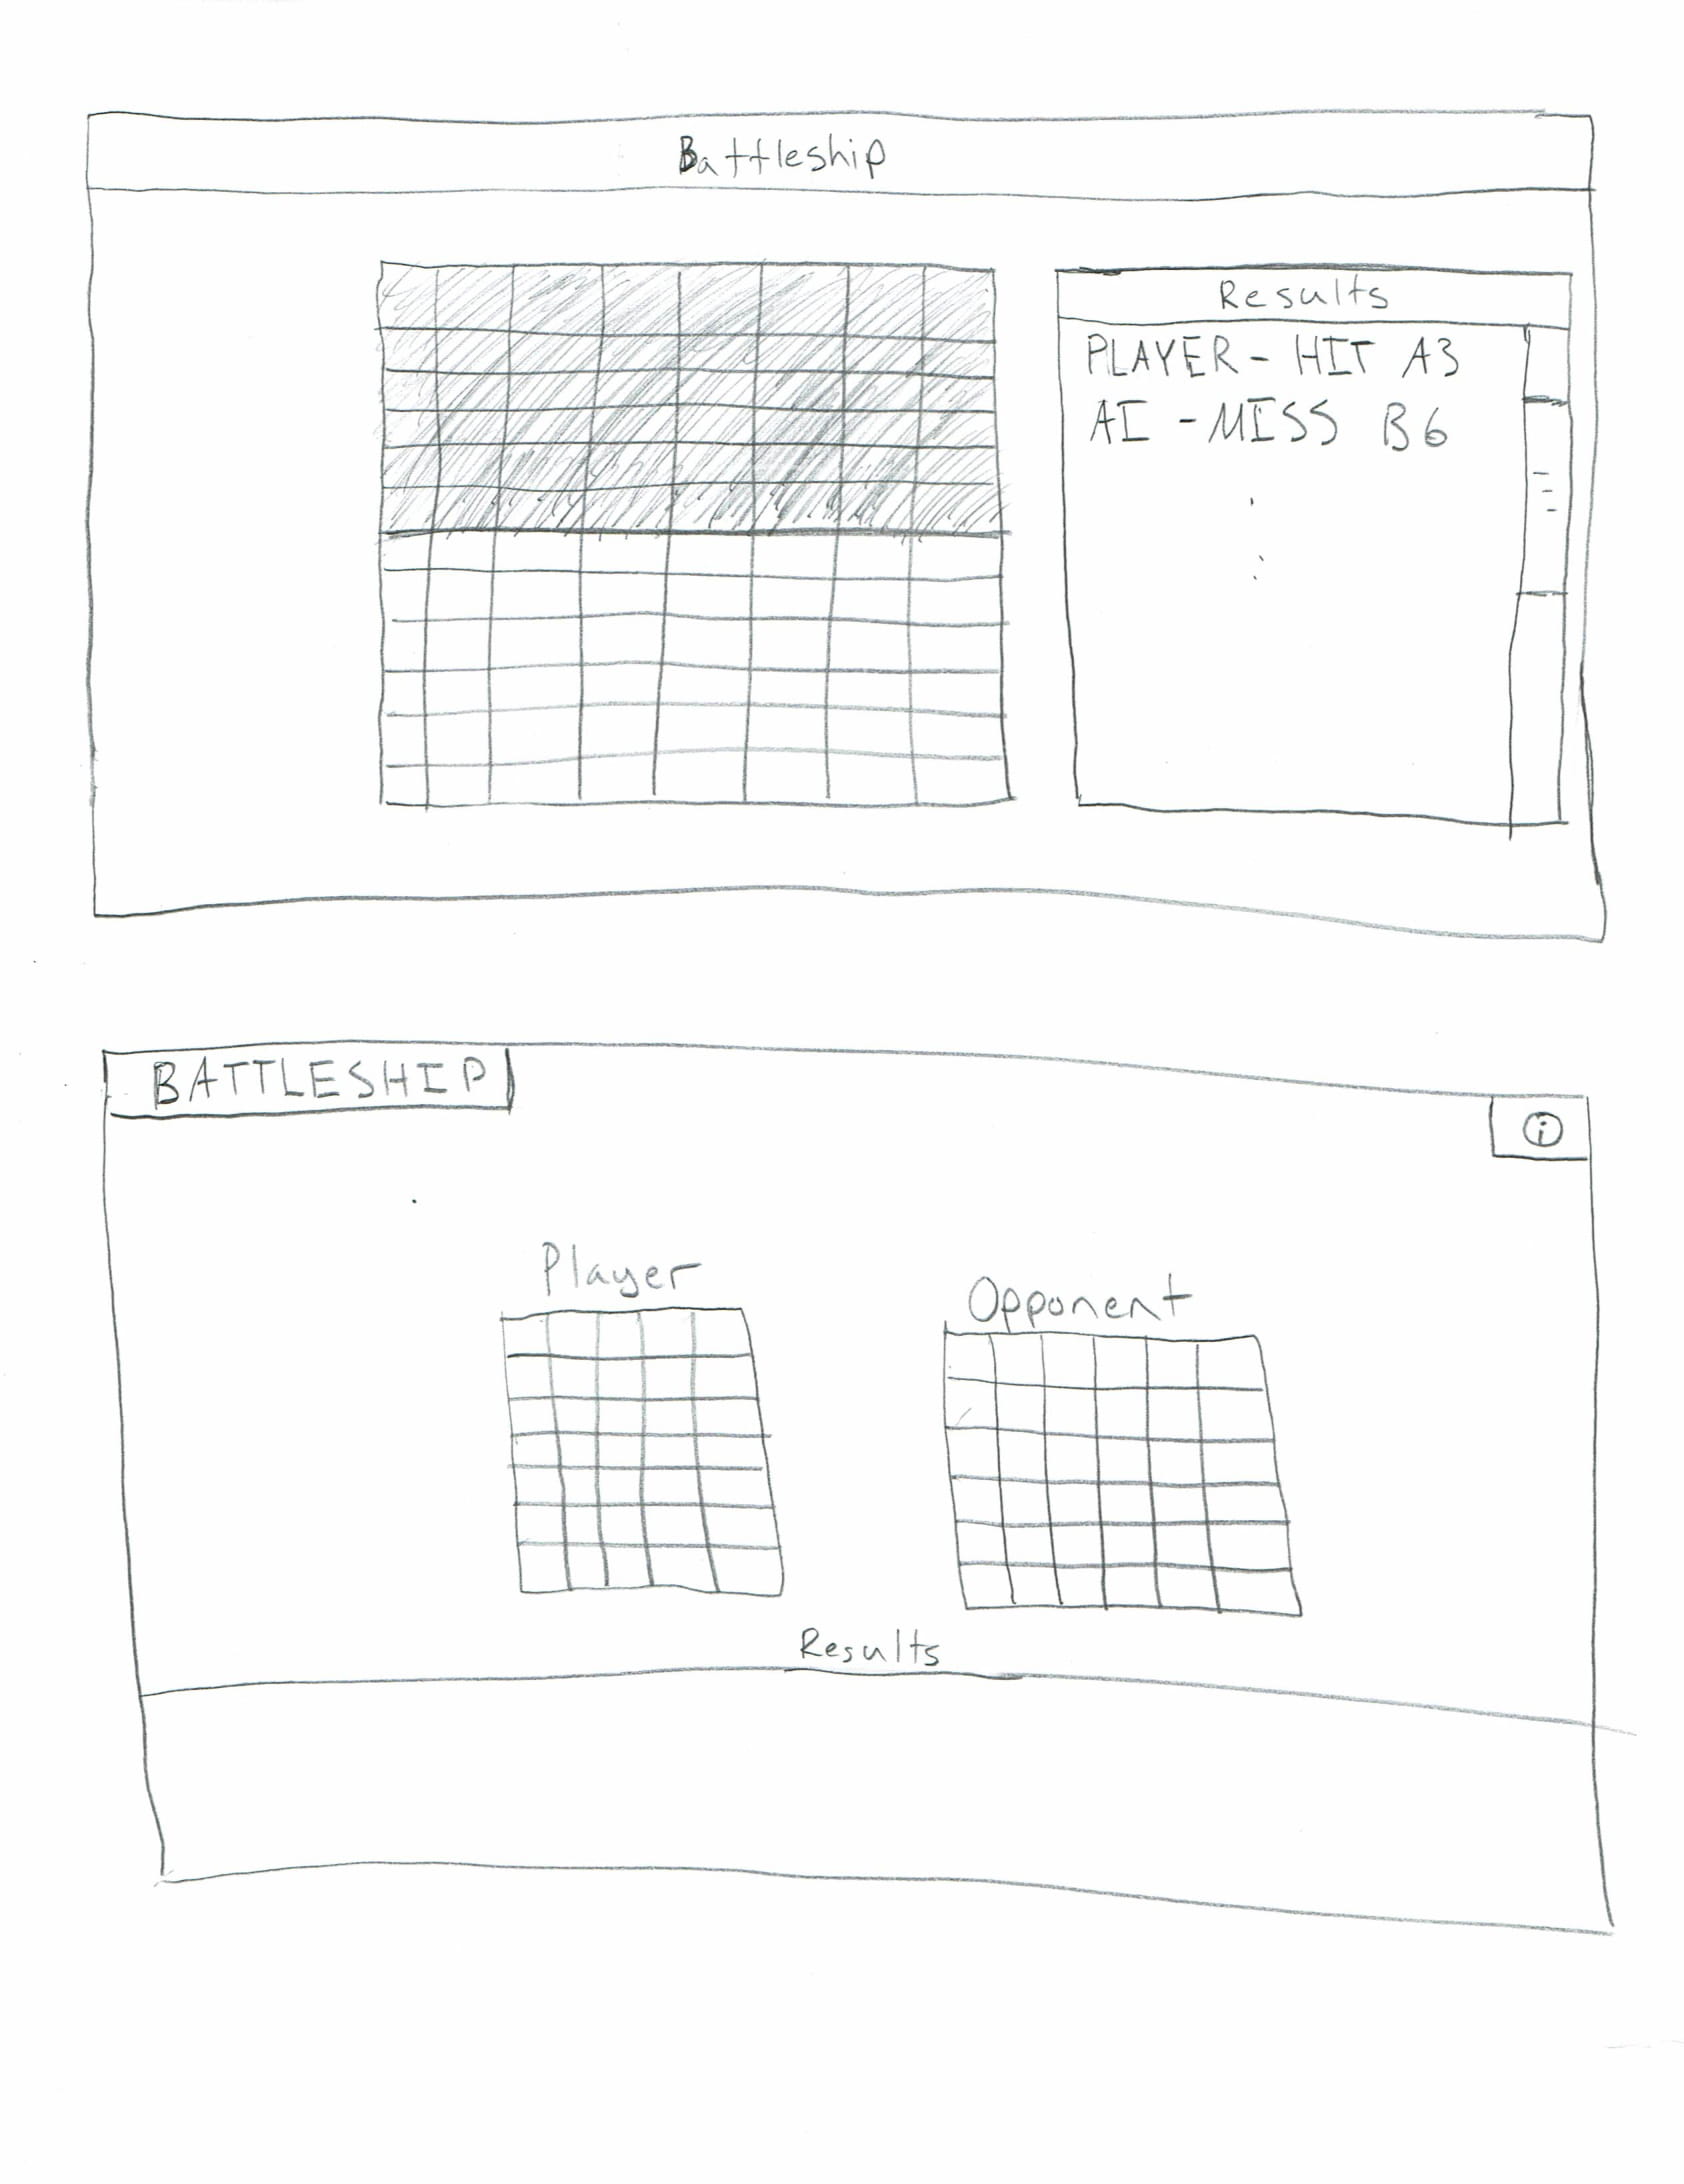 Battleship
Results
PLAYER - HIT A3
AI - MISS B6
BATTLESHIP
i
Player
Opponent
Results